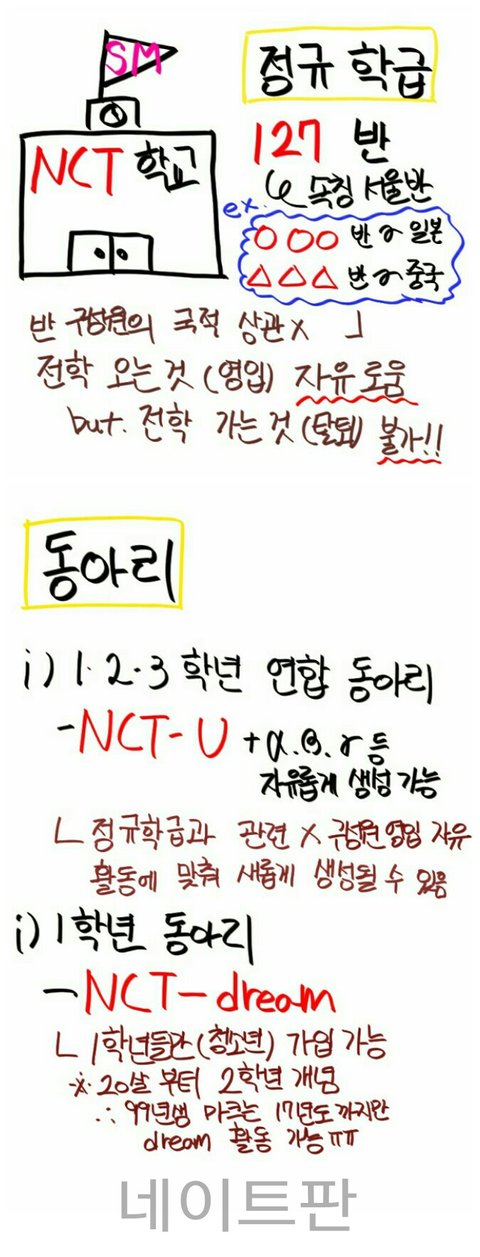 SM
NCT 학교
정규 학급
127 반
속칭 서울반
ex.
○○○ 반 일본
△△△ 반 중국
반 구성원의 국적 상관 X
전학 오는 것 (영입) 자유로움
but. 전학 가는 것 (탈퇴) 불가!!
동아리
i) 1·2·3 학년 연합 동아리
- NCT-U + α.β.γ 등
자유롭게 생성 가능
ㄴ 정규학급과 관련 X 구성원 영입 자유
활동에 맞춰 새롭게 생성될 수 있음
i) 1학년 동아리
- NCT-dream
ㄴ 1학년들만 (청소년) 가입 가능
※ 20살 부터 2학년 개념
∴ 99년생 마크는 17년도 까지만
dream 활동 가능 ㅠㅠ
네이트판